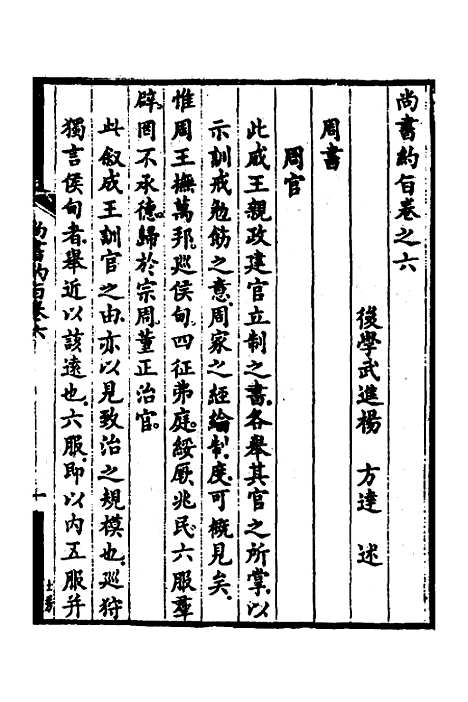 尚書約旨卷之六
後學武進楊 方達 述
周書
周官
此成王親政建官立制之書各舉其官之所掌以
示訓戒勉飭之意周家之經綸制度可概見矣
惟周王撫萬邦巡侯甸四征弗庭綏厥兆民六服羣
辟罔不承德歸於宗周董正治官
此敘成王訓官之由亦以見致治之規模也巡狩
獨言侯甸者舉近以該遠也六服即以內五服并
尚書約旨卷六
一